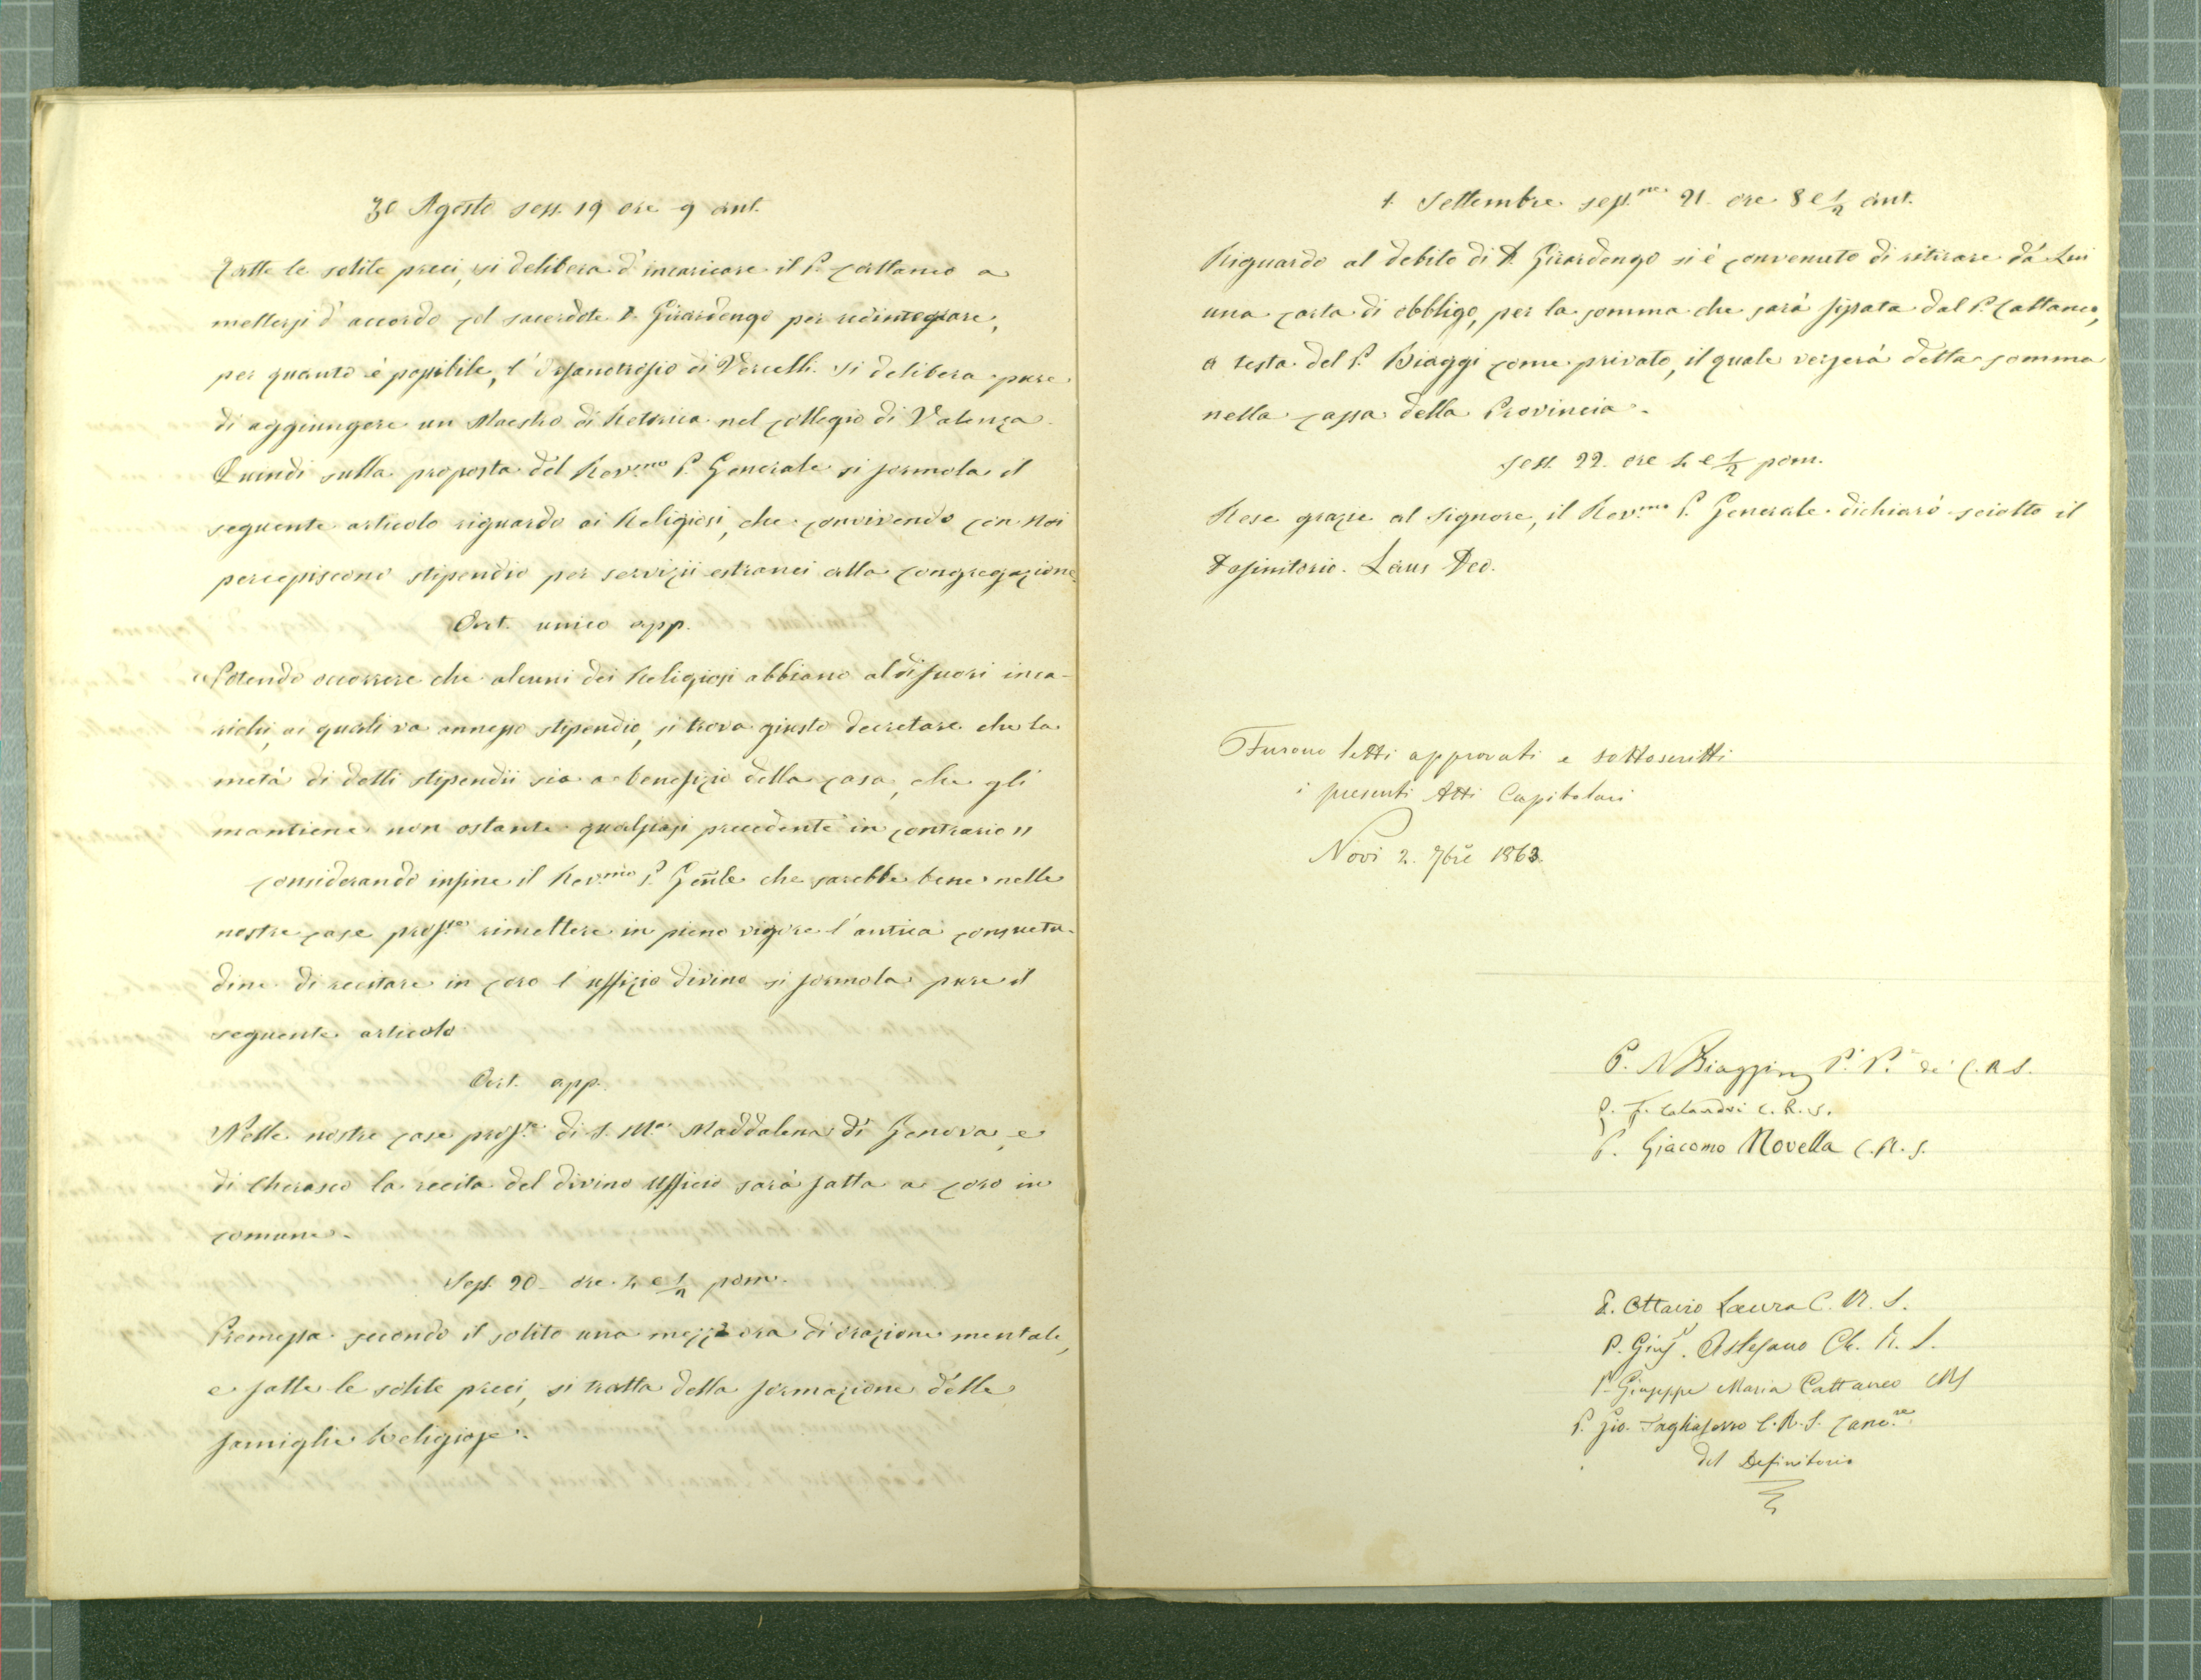 30 Agosto sess. 19 ore 9 ant.
Fatte le solite preci, si delibera d'incaricare il P. Cattaneo a
mettersi d'accordo col sacerdote D. Girardengo per redintegrare,
per quanto è possibile, l'Orfanotrofio di Vercelli. Si delibera pure
di aggiungere un Maestro di Retorica nel Collegio di Valenza.
Quindi sulla proposta del Rev.mo P. Generale si formola il
seguente articolo riguardo ai Religiosi, che convivendo con Noi
percepiscono stipendio per servizii estranei alla Congregazione.
Art. unico app.
"Potendo occorrere che alcuni dei Religiosi abbiano al di fuori inca-
richi, ai quali va annesso stipendio, si trova giusto decretare che la
metà di detti stipendii sia a benefizio della casa, che gli
mantiene non ostante qualsiasi precedente in contrario"
Considerando infine il Rev.mo P. Gen̄le che sarebbe bene nelle
nostre case prof.se rimettere in pieno vigore l'antica consuetu-
dine di recitare in coro l'uffizio divino si formola pure il
seguente articolo
Art. app.
Nelle nostre case prof.se di S. M.a Maddalena di Genova, e
di Cherasco la recita del divino Ufficio sarà fatta a coro in
comune.
Sess. 20. ore 4 e 1/2 pom.
Premessa secondo il solito una mezz'ora di orazione mentale,
e fatte le solite preci, si tratta della formazione delle
famiglie Religiose.
1. Settembre sess.ne 21. ore 8 e 1/2 ant.
Riguardo al debito di D. Girardengo si è convenuto di ritirare da Lui
una carta di obbligo, per la somma che sarà fissata dal P. Cattaneo,
a testa del P. Biaggi come privato, il quale verserà detta somma
nella cassa della Provincia.
Sess. 22. ore 4 e 1/2 pom.
Rese grazie al Signore, il Rev.mo P. Generale dichiarò sciolto il
Definitorio. Laus Deo.
Furono letti approvati e sottoscritti
i presenti Atti Capitolari
Novi 2. 7bre 1863.
P. N Biaggi P. P. de' C. R. S.
P. F. Calandri C. R. S.
P. Giacomo Novella C. R. S.
P. Ottavio Laura C. R. S.
P. Gius. Astesano Ch. R. S.
P. Giuseppe Maria Cattaneo CRS
P. Gio. Tagliaferro C. R. S. Canc.re
del Definitorio